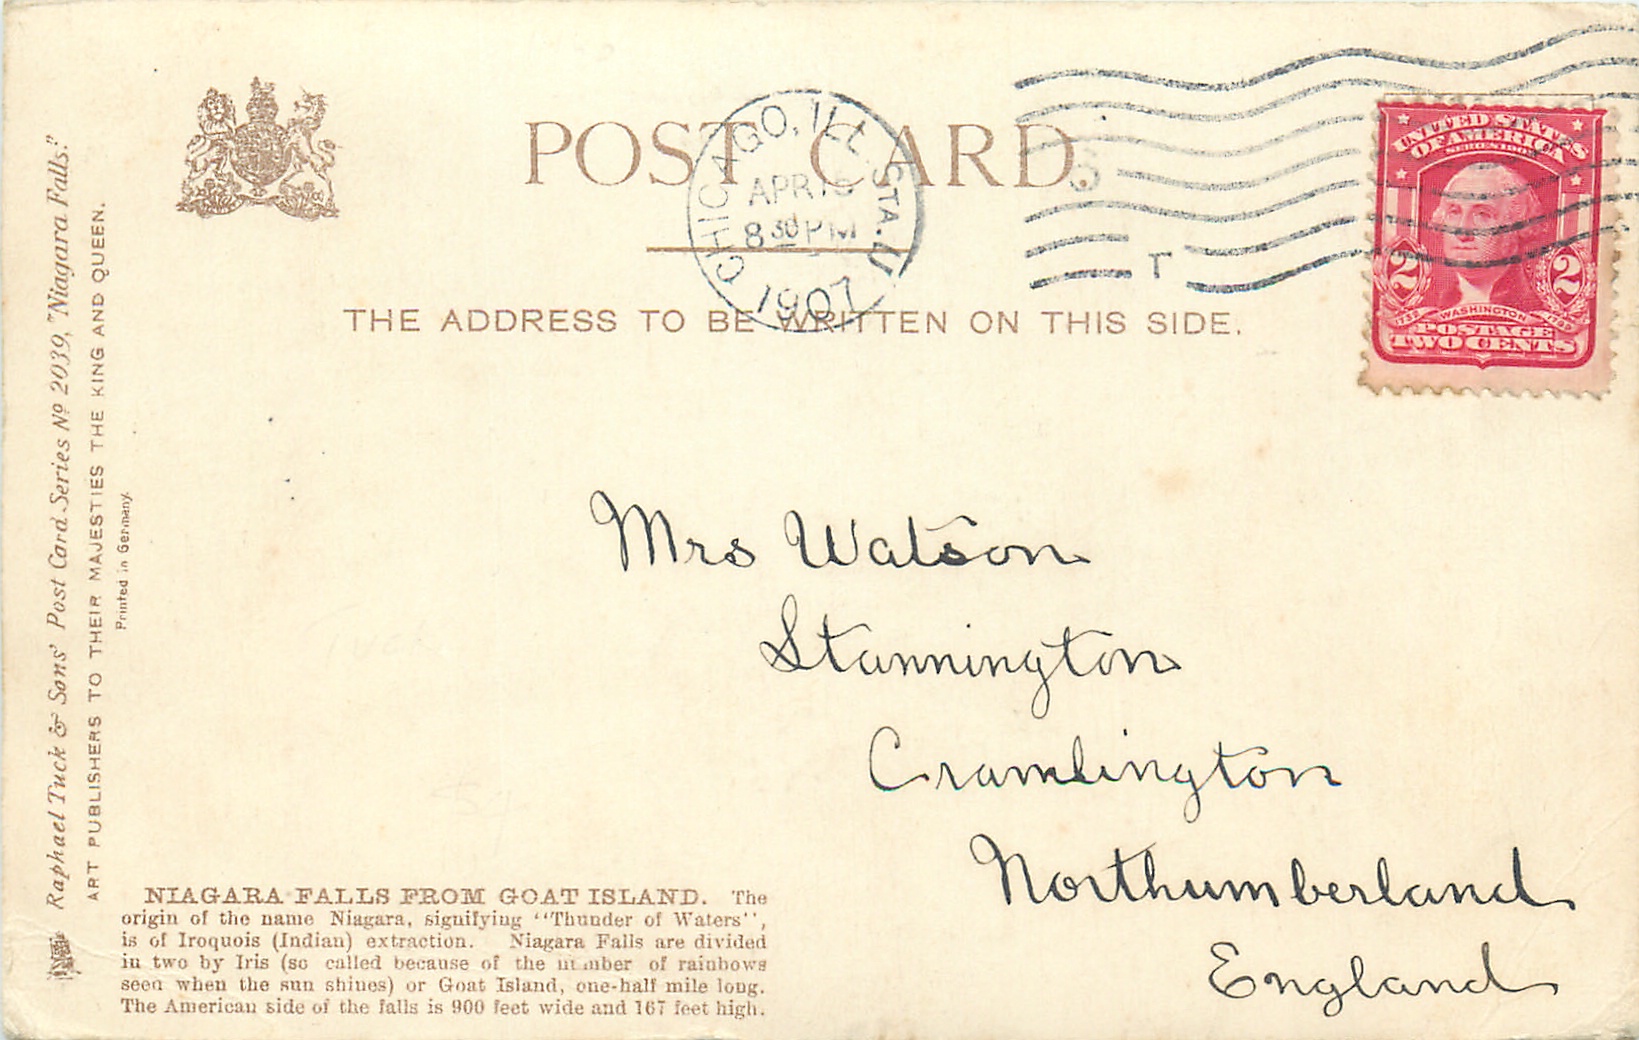 POST CARD.
THE ADDRESS TO BE WRITTEN ON THIS SIDE.
CHICAGO, ILL. STA. U
APR
8 30 PM
1907
T
UNITED STATES
OF AMERICA
SERIES 1902
2 2
1732 WASHINGTON 1799
POSTAGE
TWO CENTS
Raphael Tuck & Sons' Post Card Series Nº 2039, "Niagara Falls."
ART PUBLISHERS TO THEIR MAJESTIES THE KING AND QUEEN.
Printed in Germany.
Mrs Watson
Stannington
Cramlington
Northumberland
England
NIAGARA FALLS FROM GOAT ISLAND. The
origin of the name Niagara, signifying "Thunder of Waters",
is of Iroquois (Indian) extraction. Niagara Falls are divided
in two by Iris (so called because of the number of rainbows
seen when the sun shines) or Goat Island, one-half mile long.
The American side of the falls is 900 feet wide and 167 feet high.